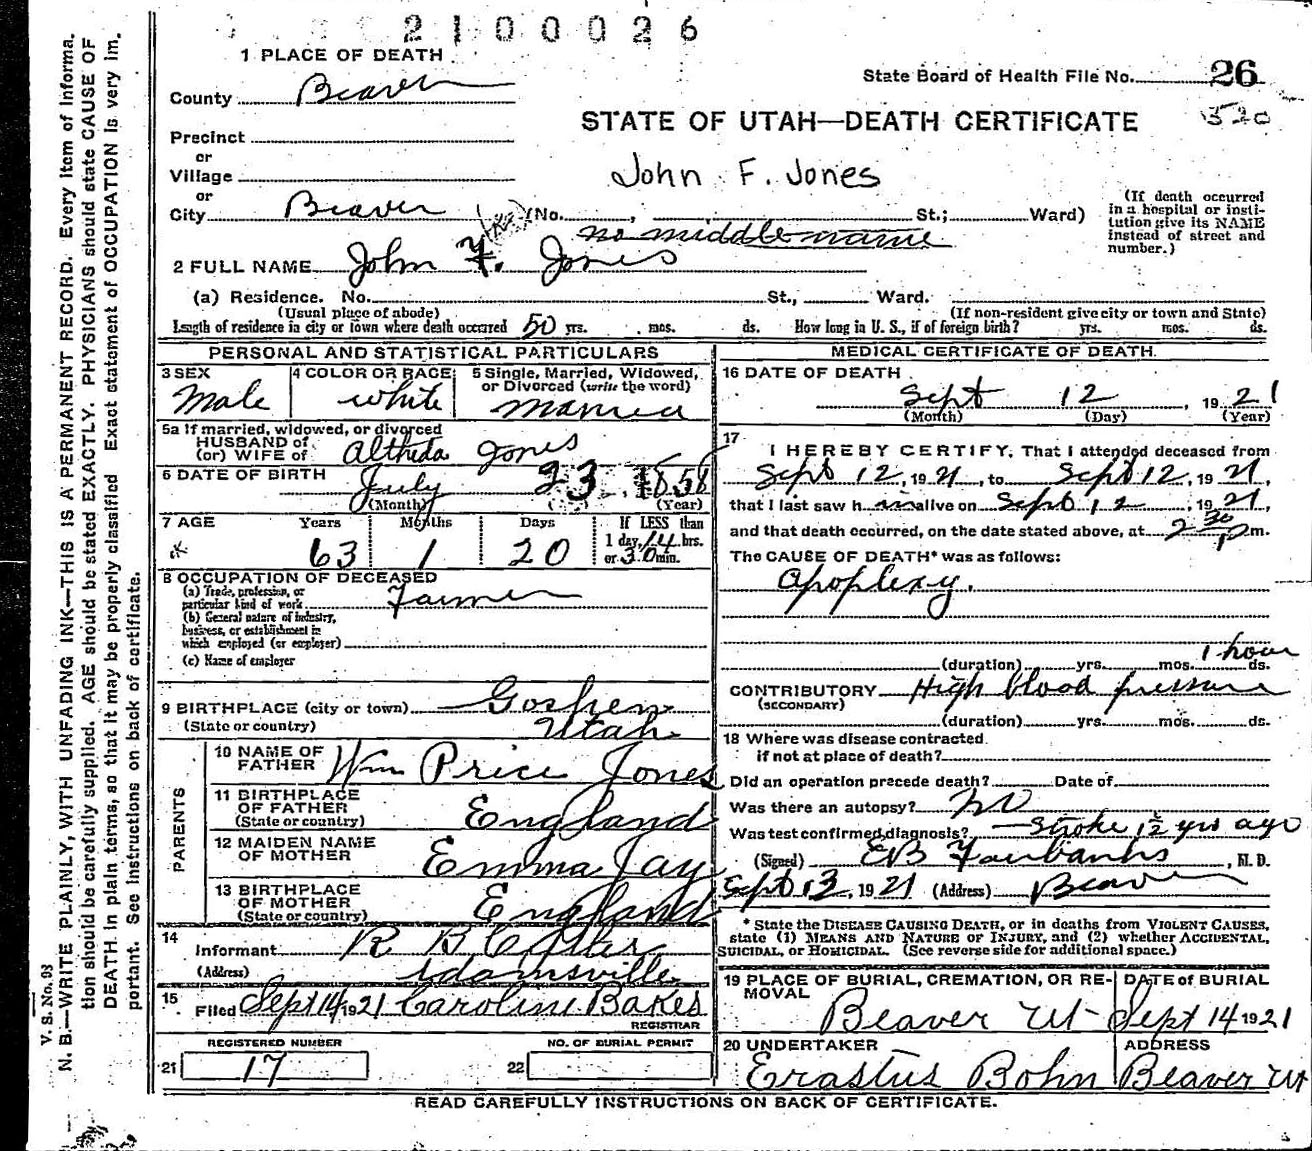 2100026
1 PLACE OF DEATH
State Board of Health File No. 26
County Beaver
STATE OF UTAH—DEATH CERTIFICATE
520
Precinct
or
Village
John F. Jones
or
City Beaver (No. , St.; Ward)
(If death occurred in a hospital or insti-
tution give its NAME
instead of street and
number.)
no middle name
2 FULL NAME John F. Jones
(a) Residence. No. St., Ward.
(Usual place of abode) (If non-resident give city or town and State)
Length of residence in city or town where death occurred 50 yrs. mos. ds. How long in U. S., if of foreign birth? yrs. mos. ds.
PERSONAL AND STATISTICAL PARTICULARS
3 SEX
Male
4 COLOR OR RACE
white
5 Single, Married, Widowed,
or Divorced (write the word)
Married
5a If married, widowed, or divorced
HUSBAND of
(or) WIFE of Altheda Jones
6 DATE OF BIRTH
July 23, 1858
(Month) (Year)
7 AGE Years Months Days If LESS than
1 day, 14 hrs.
63 1 20 or 30 min.
8 OCCUPATION OF DECEASED
(a) Trade, profession, or
particular kind of work Farmer
(b) General nature of industry,
business, or establishment in
which employed (or employer)
(c) Name of employer
9 BIRTHPLACE (city or town) Goshen
(State or country) Utah
PARENTS
10 NAME OF
FATHER Wm Price Jones
11 BIRTHPLACE
OF FATHER England
(State or country)
12 MAIDEN NAME
OF MOTHER Emma Jay
13 BIRTHPLACE
OF MOTHER England
(State or country)
14
Informant R B
(Address) Adamsville
15
Filed Sept 14 1921 Caroline Bakes
REGISTRAR
REGISTERED NUMBER NO. OF BURIAL PERMIT
21 17 22
MEDICAL CERTIFICATE OF DEATH
16 DATE OF DEATH
Sept 12, 1921
(Month) (Day) (Year)
17
I HEREBY CERTIFY, That I attended deceased from
Sept 12, 1921, to Sept 12, 1921,
that I last saw h im alive on Sept 12, 1921,
and that death occurred, on the date stated above, at 2 30 P m.
The CAUSE OF DEATH* was as follows:
Apoplexy.
1 hour
(duration) yrs. mos. ds.
CONTRIBUTORY High blood pressure
(SECONDARY)
(duration) yrs. mos. ds.
18 Where was disease contracted
if not at place of death?
Did an operation precede death? Date of
Was there an autopsy? No
Was test confirmed diagnosis? Stroke 1½ yrs ago
(Signed) EB Fairbanks, M. D.
Sept 13, 1921 (Address) Beaver
* State the DISEASE CAUSING DEATH, or in deaths from VIOLENT CAUSES,
state (1) MEANS AND NATURE OF INJURY, and (2) whether ACCIDENTAL,
SUICIDAL, or HOMICIDAL. (See reverse side for additional space.)
19 PLACE OF BURIAL, CREMATION, OR RE-
MOVAL
Beaver Ut
DATE of BURIAL
Sept 14 1921
20 UNDERTAKER
Erastus Bohn
ADDRESS
Beaver Ut
READ CAREFULLY INSTRUCTIONS ON BACK OF CERTIFICATE.
V. S. No. 98
N. B.—WRITE PLAINLY, WITH UNFADING INK—THIS IS A PERMANENT RECORD. Every item of informa-
tion should be carefully supplied. AGE should be stated EXACTLY. PHYSICIANS should state CAUSE OF
DEATH in plain terms, so that it may be properly classified. Exact statement of OCCUPATION is very im-
portant. See instructions on back of certificate.